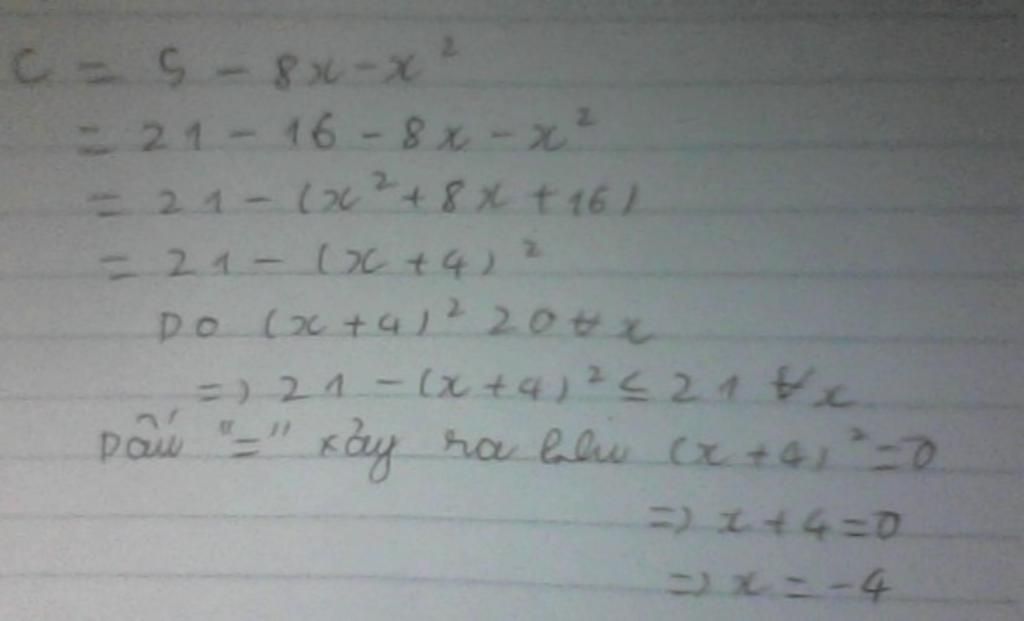 C = 5 - 8x - x²
= 21 - 16 - 8x - x²
= 21 - (x² + 8x + 16)
= 21 - (x + 4)²
Do (x + 4)² ≥ 0 ∀ x
=> 21 - (x + 4)² ≤ 21 ∀ x
Dấu "=" xảy ra khi (x + 4)² = 0
=> x + 4 = 0
=> x = -4